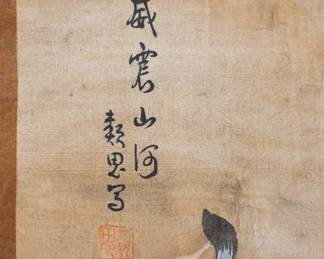 威震山河
類思写